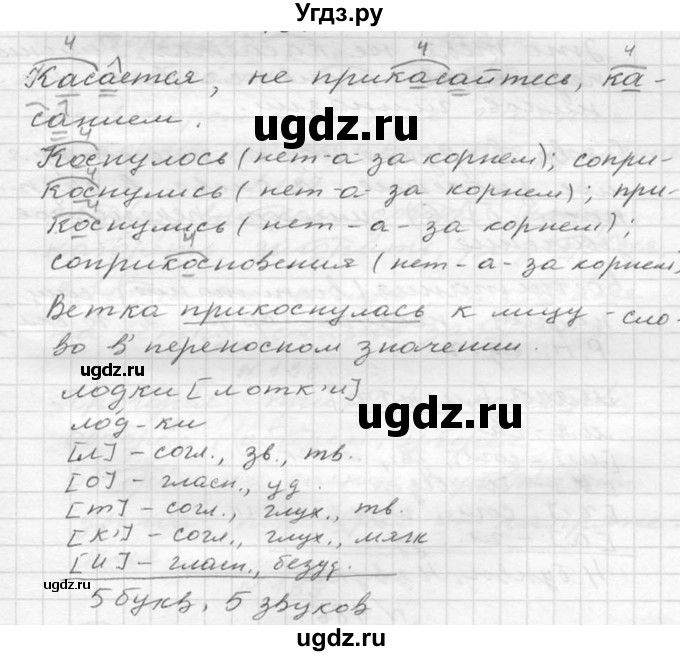 Угдз.ру
Касается, не прикасайтесь, ка-
санием.
Коснулось (нет -а- за корнем); сопри-
коснулись (нет -а- за корнем); при-
коснулись (нет -а- за корнем);
соприкосновения (нет -а- за корнем)
Ветка прикоснулась к лицу - сло-
во в переносном значении.
лодки [лотк'и]
лод-ки
[л] - согл., зв., тв.
[о] - гласн., уд.
[т] - согл., глух., тв.
[к'] - согл., глух., мягк
[и] - гласн., безуд.
5 букв, 5 звуков
ugdz.ru
ugdz.ru
ugdz.ru
ugdz.ru
ugdz.ru
ugdz.ru
ugdz.ru